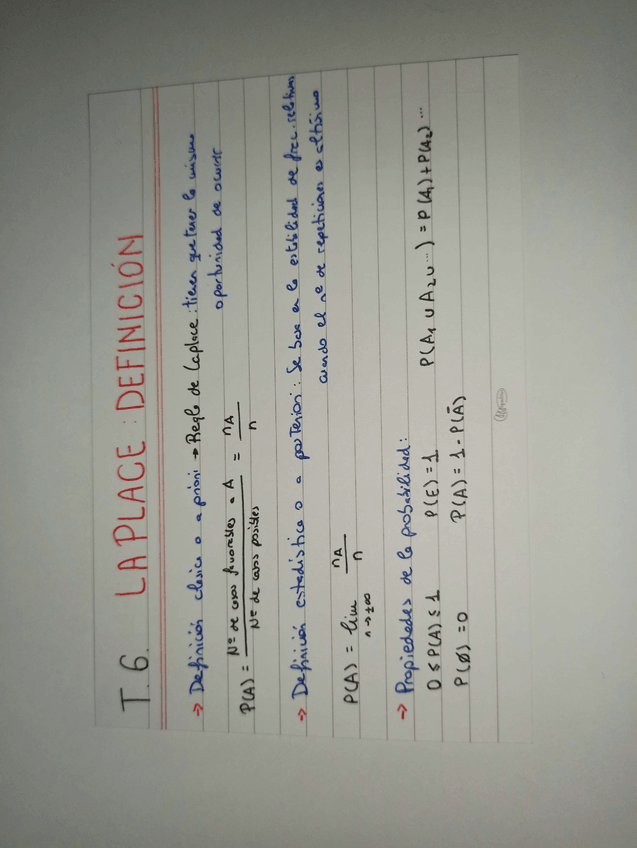 T.6. LAPLACE: DEFINICIÓN
→ Definición clásica o a priori → Regla de Laplace: tienen que tener la misma
oportunidad de ocurrir
P(A) = Nº de casos favorables a A / Nº de casos posibles = nA / n
→ Definición estadística o a posteriori: Se basa en la estabilidad de frec. relativas
cuando el nº de repeticiones es altísimo
P(A) = lim n→±∞ nA / n
→ Propiedades de la probabilidad:
0 ≤ P(A) ≤ 1 P(E) = 1 P(A₁ ∪ A₂ ∪ ...) = P(A₁) + P(A₂) ...
P(Ø) = 0 P(A) = 1 - P(Ā)